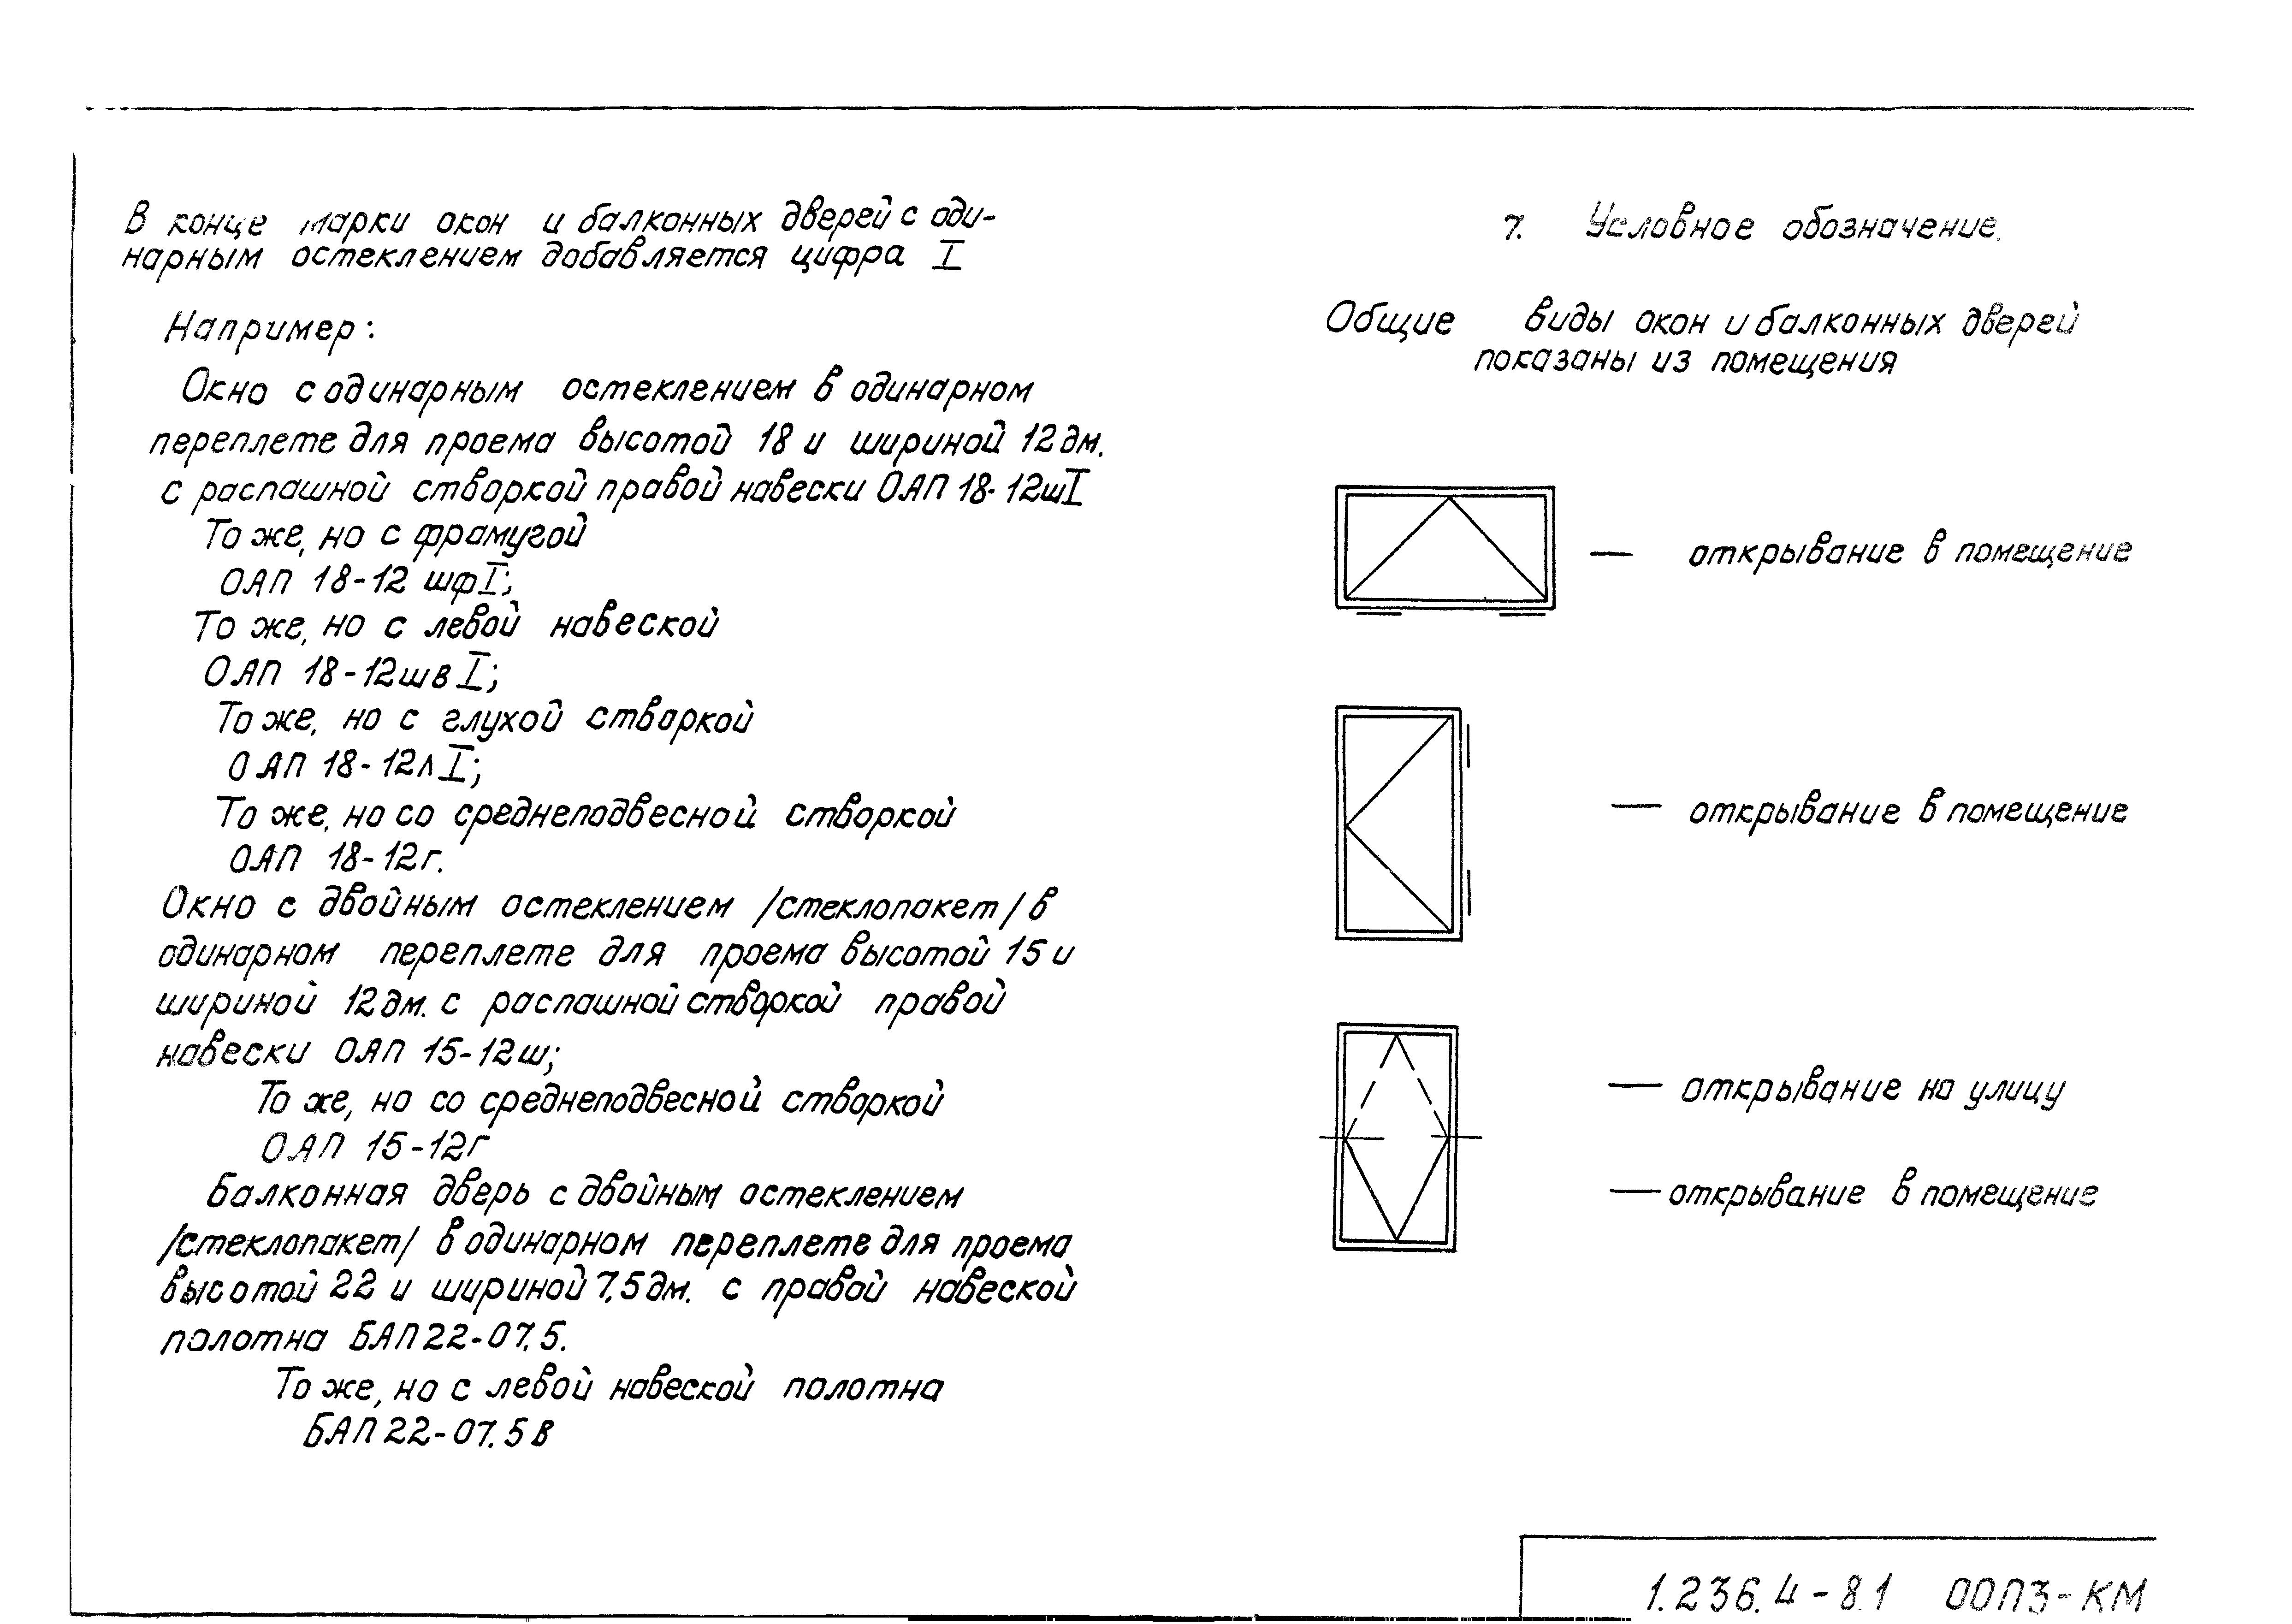 В конце марки окон и балконных дверей с оди-
нарным остеклением добавляется цифра I
Например:
Окно с одинарным остеклением в одинарном
переплете для проема высотой 18 и шириной 12 дм.
с распашной створкой правой навески ОАП 18-12шI
То же, но с фрамугой
ОАП 18-12 шфI;
То же, но с левой навеской
ОАП 18-12шв I;
То же, но с глухой створкой
ОАП 18-12л I;
То же, но со среднеподвесной створкой
ОАП 18-12г.
Окно с двойным остеклением /стеклопакет/ в
одинарном переплете для проема высотой 15 и
шириной 12 дм. с распашной створкой правой
навески ОАП 15-12ш;
То же, но со среднеподвесной створкой
ОАП 15-12г
Балконная дверь с двойным остеклением
/стеклопакет/ в одинарном переплете для проема
высотой 22 и шириной 7,5 дм. с правой навеской
полотна БАП 22-07,5.
То же, но с левой навеской полотна
БАП 22-07,5 в
7. Условное обозначение.
Общие виды окон и балконных дверей
показаны из помещения
— открывание в помещение
— открывание в помещение
— открывание на улицу
— открывание в помещение
1.236.4-8.1 00ПЗ-КМ